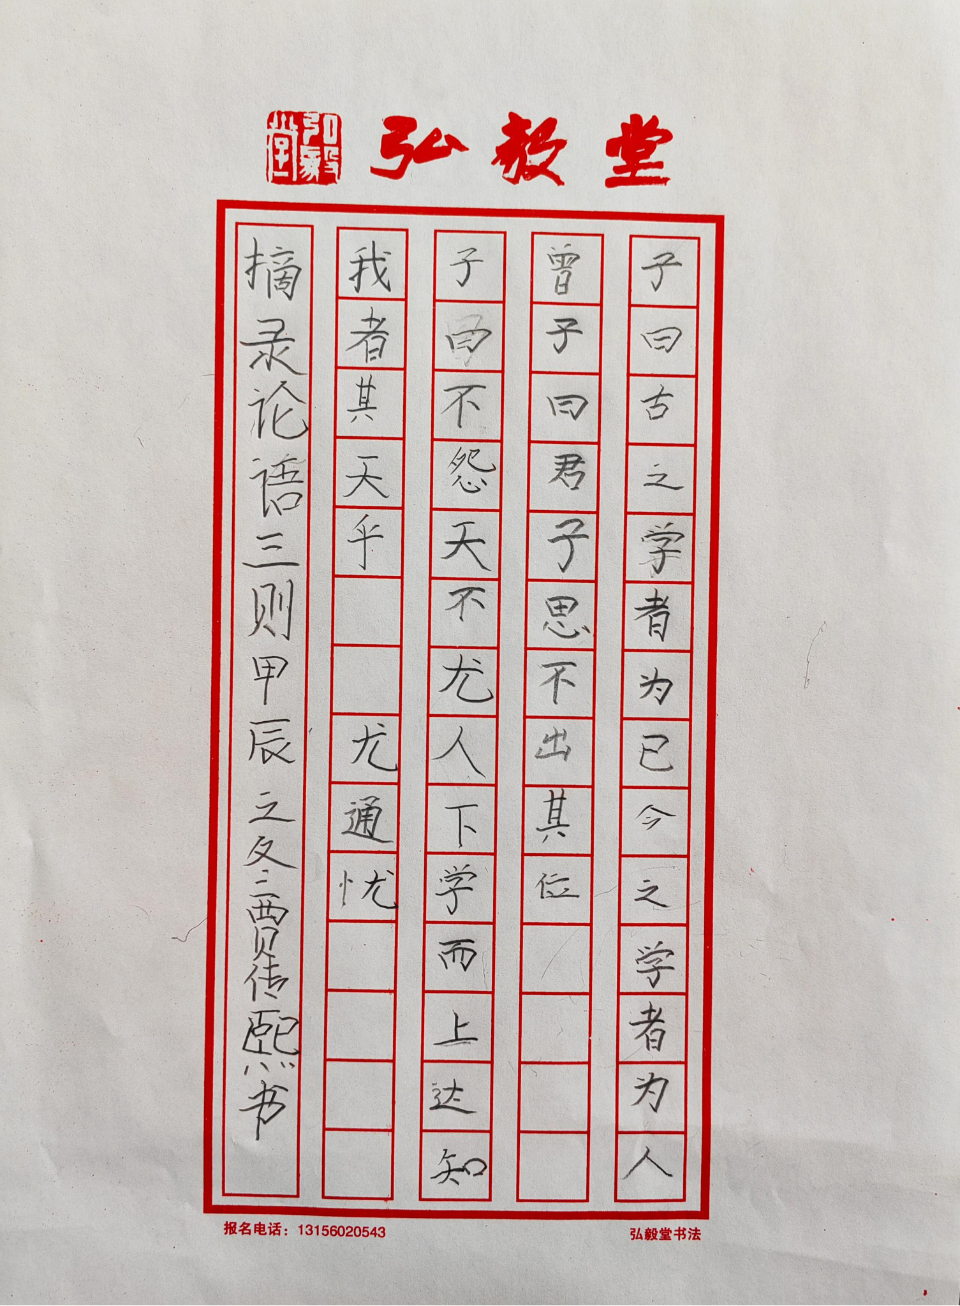 弘毅堂
弘毅堂
子曰古之学者为己今之学者为人
曾子曰君子思不出其位
子曰不怨天不尤人下学而上达知
我者其天乎 尤通忧
摘录论语三则甲辰之冬贾传熙书
报名电话：13156020543
弘毅堂书法